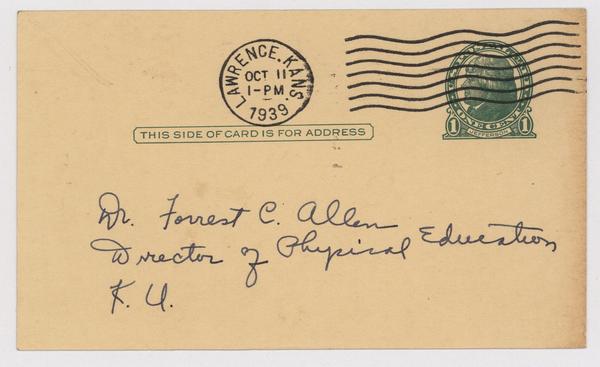 LAWRENCE, KANS.
OCT 11
1-PM
1939
THIS SIDE OF CARD IS FOR ADDRESS
1 JEFFERSON 1
Dr. Forrest C. Allen
Director of Physical Education
K. U.